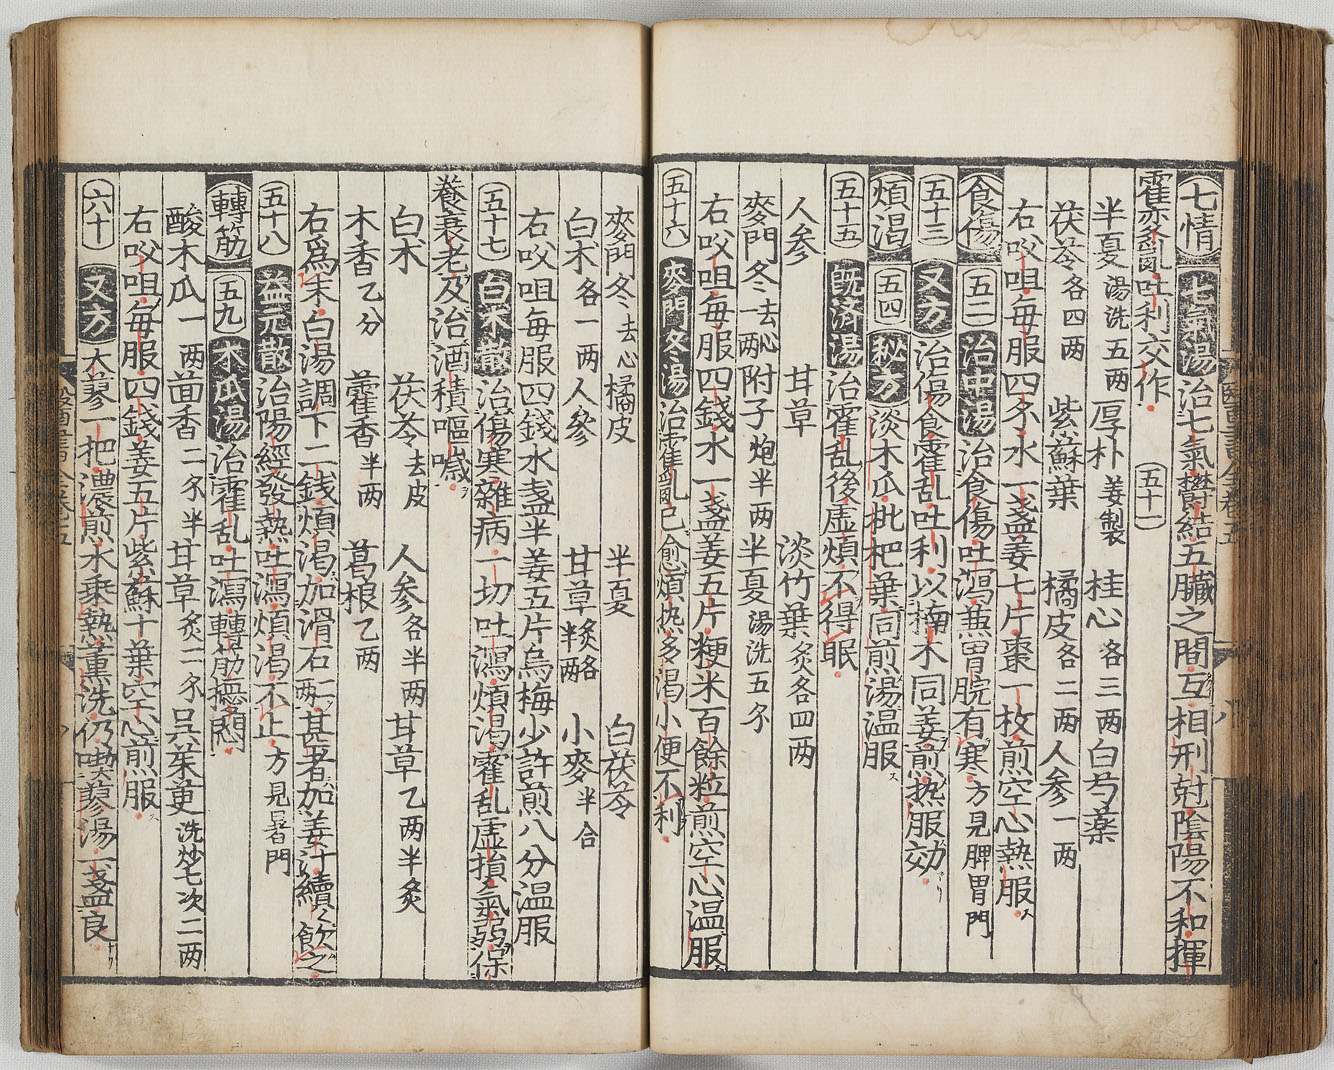 七情 七氣湯 治七氣欝結五臟之間互相刑尅陰陽不和揮
霍变亂吐利交作 五十一
半夏湯洗五两 厚朴姜製 桂心各三两 白芍薬
茯苓各四两 紫蘇葉 橘皮各二两 人参一两
右㕮咀毎服四夕水一盞姜七片棗一枚煎空心熱服
食傷 五二 治中湯 治食傷吐瀉兼胃脘有寒方見脾胃門
五十三 又方 治傷食霍乱吐利以楠木同姜煎热服効
煩渇 五四 秘方 淡木瓜枇杷葉同煎湯温服
五十五 既済湯 治霍乱後虚煩不得眠
人参 甘草 淡竹葉炙各四两
麥門冬去心一两 附子炮半两 半夏湯洗五夕
右㕮咀毎服四錢水一盞姜五片粳米百餘粒煎空心温服
五十六 麥門冬湯 治霍亂已愈煩热多渇小便不利
麥門冬去心 橘皮 半夏 白茯苓
白朮各一两 人參 甘草炙各半两 小麥半合
右㕮咀毎服四錢水盞半姜五片烏梅少許煎八分温服
五十七 白朮散 治傷寒雜病一切吐瀉煩渇霍乱虚損氣弱保
養衰老及治酒積嘔噦
白朮 茯苓去皮 人参各半两 甘草乙两半炙
木香乙分 藿香半两 葛根乙两
右爲末白湯調下二錢煩渇加滑石二两甚者加姜汁續〻飲之
五十八 益元散 治陽經發熱吐瀉煩渇不止方見暑門
轉筋 五九 木瓜湯 治霍乱吐瀉轉筋擾悶
酸木瓜一两 茴香二夕半 甘草炙二夕 呉茱萸洗炒七次二两
右㕮咀毎服四錢姜五片紫蘇十葉空心煎服
六十 又方 大蓼一把濃煎水乗熱薫洗仍喫蓼湯一盞良